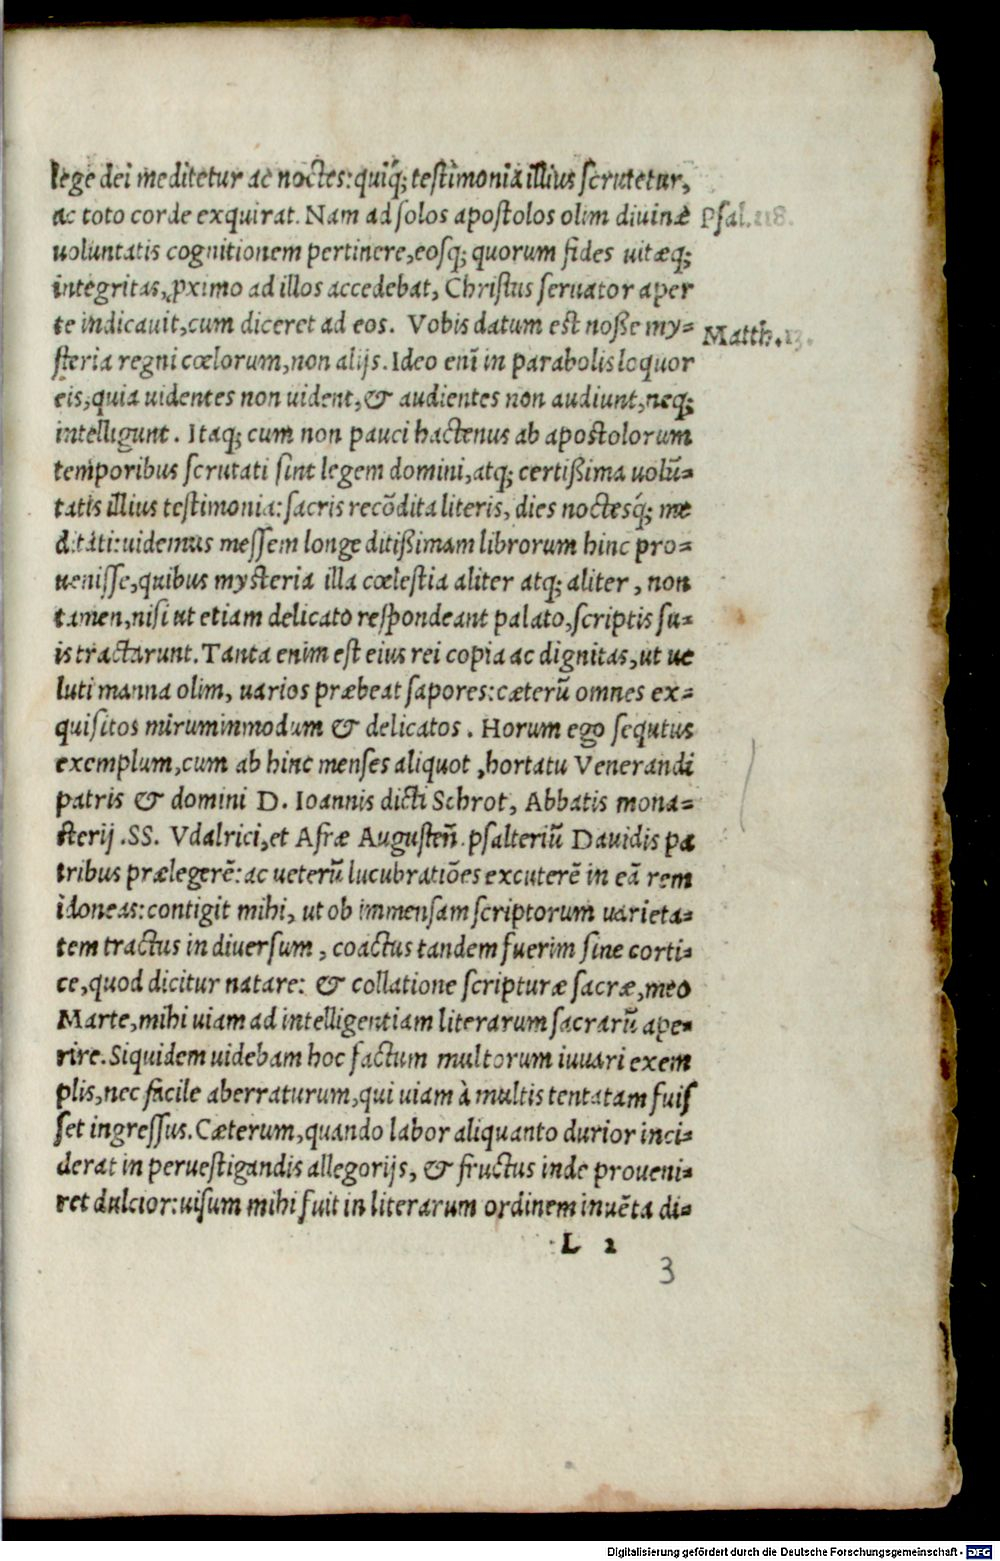 lege dei meditetur ac noctes: quiq́; testimonia illius scrutetur,
ac toto corde exquirat. Nam ad solos apostolos olim diuinæ
Psal. 118.
uoluntatis cognitionem pertinere, eosq; quorum fides uitæq;
integritas, ꝓximo ad illos accedebat, Christus seruator aper
te indicauit, cum diceret ad eos. Vobis datum est noße my-
Matth. 13.
steria regni cœlorum, non alijs. Ideo enī in parabolis loquor
eis, quia uidentes non uident, & audientes non audiunt, neq;
intelligunt. Itaq; cum non pauci hactenus ab apostolorum
temporibus scrutati sint legem domini, atq; certißima uolū-
tatis illius testimonia: sacris recōdita literis, dies noctesq́; me
ditati: uidemus messem longe ditißimam librorum hinc pro-
uenisse, quibus mysteria illa cœlestia aliter atq; aliter, non
tamen, nisi ut etiam delicato respondeant palato, scriptis su-
is tractarunt. Tanta enim est eius rei copia ac dignitas, ut ue
luti manna olim, uarios præbeat sapores: cæterū omnes ex-
quisitos miruminmodum & delicatos. Horum ego sequtus
exemplum, cum ab hinc menses aliquot, hortatu Venerandi
patris & domini D. Ioannis dicti Schrot, Abbatis mona-
sterij .SS. Vdalrici, et Afræ Augusteñ. psalteriū Dauidis pa
tribus prælegerē: ac ueterū lucubratiōes excuterē in eā rem
idoneas: contigit mihi, ut ob immensam scriptorum uarieta-
tem tractus in diuersum, coactus tandem fuerim sine corti-
ce, quod dicitur natare: & collatione scripturæ sacræ, meo
Marte, mihi uiam ad intelligentiam literarum sacrarū ape-
rire. Siquidem uidebam hoc factum multorum iuuari exem
plis, nec facile aberraturum, qui uiam à multis tentatam fuis
set ingressus. Cæterum, quando labor aliquanto durior inci-
derat in peruestigandis allegorijs, & fructus inde proueni-
ret dulcior: uisum mihi fuit in literarum ordinem inuēta di-
L 2
3
Digitalisierung gefördert durch die Deutsche Forschungsgemeinschaft - DFG